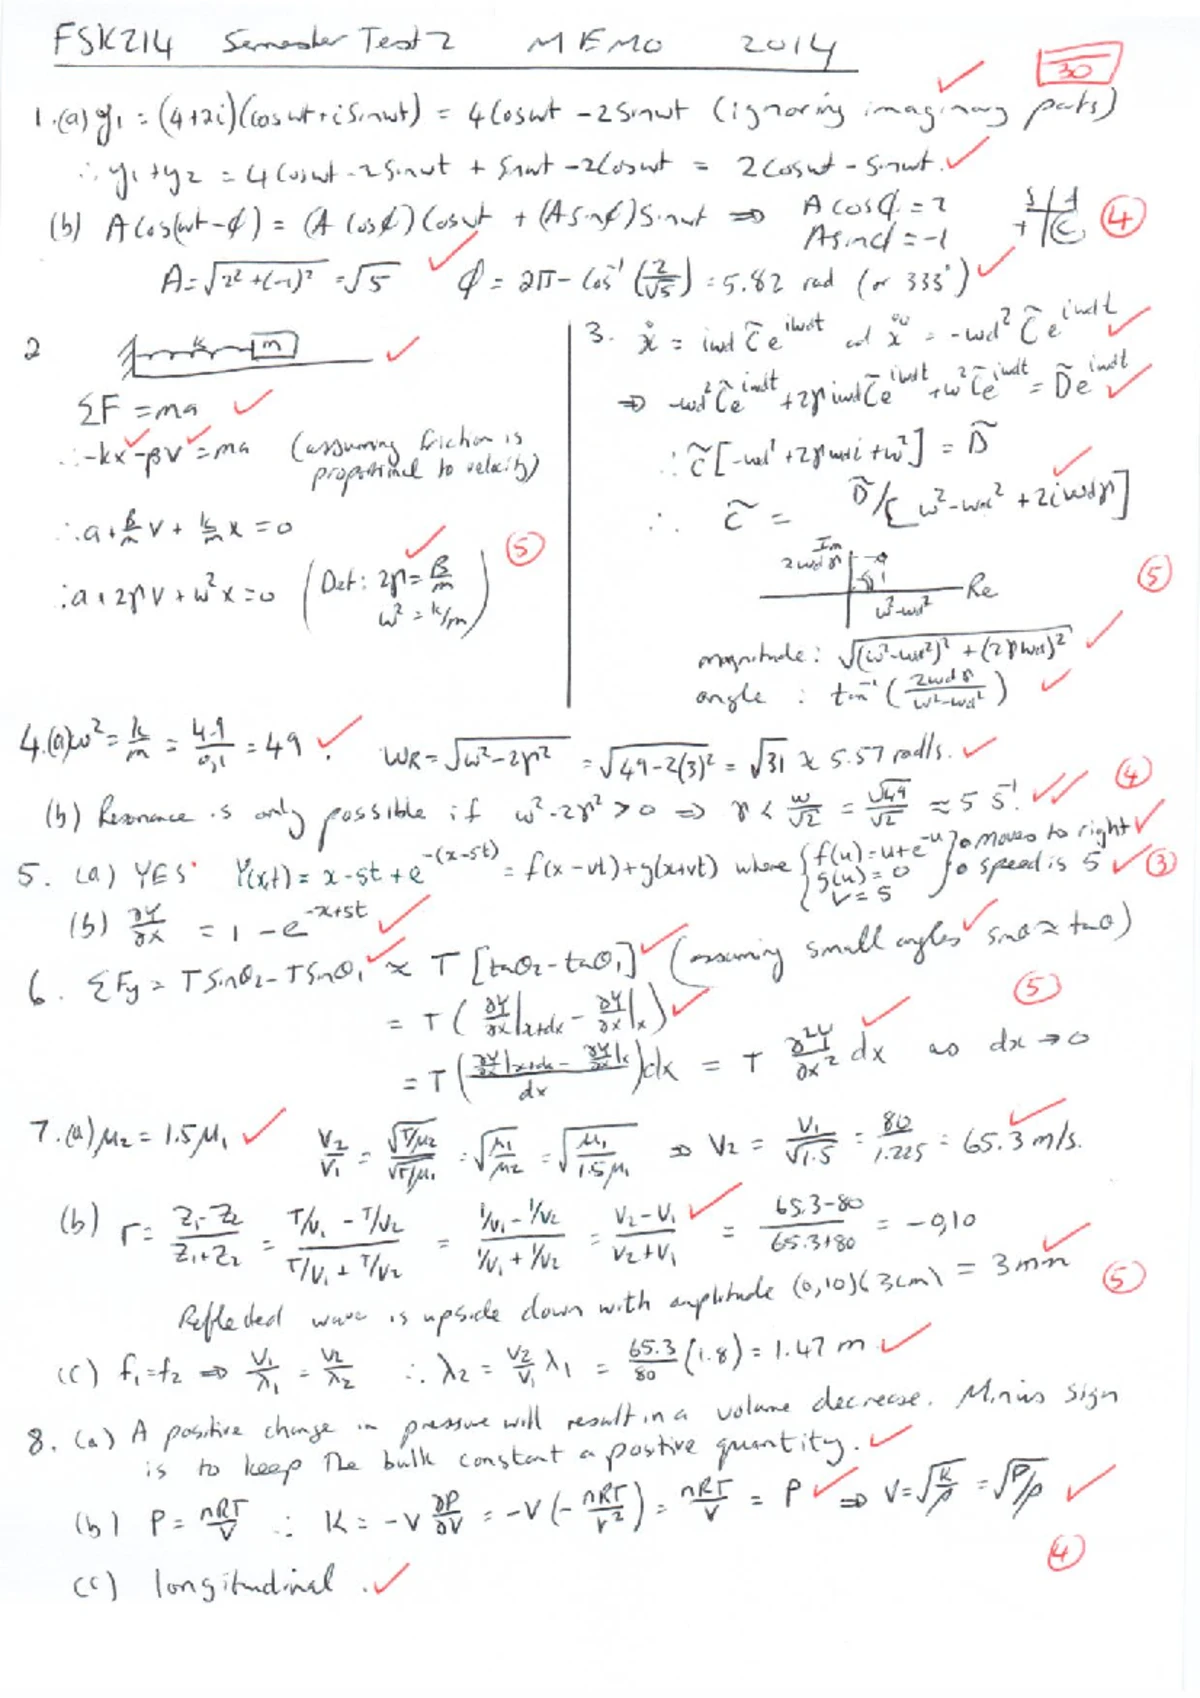 FSK214 Semester Test 2 MEMO 2014
30
1.(a) y₁ = (4+2i)(cosωt+iSinωt) = 4Cosωt - 2Sinωt (ignoring imaginary parts)
∴ y₁+y₂ = 4Cosωt - 2Sinωt + Sinωt - 2Cosωt = 2Cosωt - Sinωt.
(b) ACos(ωt-ϕ) = (A Cosϕ)Cosωt + (A Sinϕ)Sinωt ⇒ A cosϕ = 2
A sinϕ = -1
S A
T C
4
A = √(2²+(-1)²) = √5 ϕ = 2π - Cos⁻¹(2/√5) = 5.82 rad (or 333°)
2
k m
ΣF = ma
∴ -kx - βv = ma (assuming friction is proportional to velocity)
∴ a + β/m v + k/m x = 0
∴ a + 2γv + ω²x = 0 (Def: 2γ = β/m
ω² = k/m)
5
3. ẋ = iωd C̃ e^(iωdt) and ẍ = -ωd² C̃ e^(iωdt)
⇒ -ωd² C̃e^(iωdt) + 2γiωd C̃e^(iωdt) + ω² C̃e^(iωdt) = D̃e^(iωdt)
∴ C̃[-ωd² + 2γωdi + ω²] = D̃
∴ C̃ = D̃/[ω² - ωd² + 2iωdγ]
Im
2ωdγ
Re
ω²-ωd²
5
magnitude: √((ω²-ωd²)² + (2γωd)²)
angle : tan⁻¹(2ωdγ/(ω²-ωd²))
4.(a) ω² = k/m = 4.9/0,1 = 49. ωR = √(ω²-2γ²) = √(49-2(3)²) = √31 ≈ 5.57 rad/s.
(b) Resonance is only possible if ω²-2γ² > 0 ⇒ γ < ω/√2 = √49/√2 ≈ 5 s⁻¹.
4
5. (a) YES. Y(x,t) = x-5t + e^(-(x-5t)) = f(x-vt)+g(x+vt) where {f(u) = u+e^(-u)
g(u) = 0
v = 5 } ∘ moves to right
∘ speed is 5
3
(b) ∂Y/∂x = 1 - e^(-x+5t)
6. ΣFy = TSinθ₂ - TSinθ₁ ≈ T[tanθ₂ - tanθ₁] (assuming small angles sinθ ≈ tanθ)
= T(∂Y/∂x|x+dx - ∂Y/∂x|x)
5
= T((∂Y/∂x|x+dx - ∂Y/∂x|x)/dx)dx = T ∂²Y/∂x² dx as dx → 0
7.(a) μ₂ = 1.5μ₁ V₂/V₁ = √(T/μ₂)/√(T/μ₁) = √(μ₁/μ₂) = √(μ₁/1.5μ₁) ⇒ V₂ = V₁/√1.5 = 80/1.225 = 65.3 m/s.
(b) r = (Z₁-Z₂)/(Z₁+Z₂) = (T/V₁ - T/V₂)/(T/V₁ + T/V₂) = (1/V₁ - 1/V₂)/(1/V₁ + 1/V₂) = (V₂-V₁)/(V₂+V₁) = (65.3-80)/(65.3+80) = -0,10
Reflected wave is upside down with amplitude (0,10)(3cm) = 3mm
5
(c) f₁=f₂ ⇒ V₁/λ₁ = V₂/λ₂ ∴ λ₂ = V₂/V₁ λ₁ = 65.3/80 (1.8) = 1.47 m
8. (a) A positive change in pressure will result in a volume decrease. Minus sign
is to keep the bulk constant a postive quantity.
(b) P = nRT/V ∴ K = -V ∂P/∂V = -V(-nRT/V²) = nRT/V = P ⇒ V = √(K/ρ) = √(P/ρ)
4
(c) longitudinal.